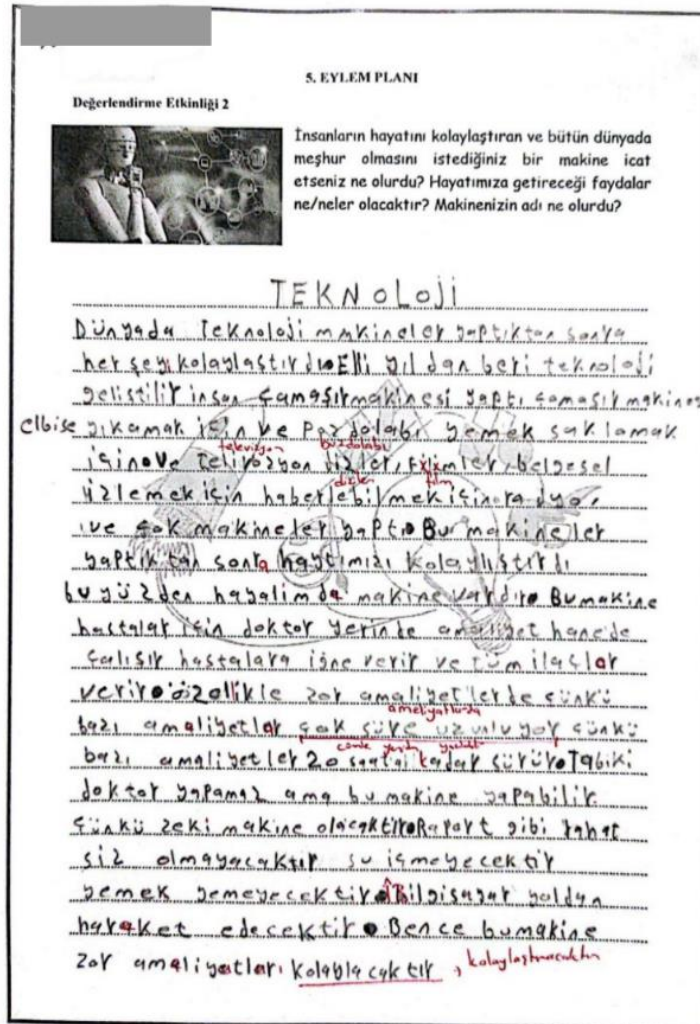 5. EYLEM PLANI
Değerlendirme Etkinliği 2
İnsanların hayatını kolaylaştıran ve bütün dünyada
meşhur olmasını istediğiniz bir makine icat
etseniz ne olurdu? Hayatımıza getireceği faydalar
ne/neler olacaktır? Makinenizin adı ne olurdu?
TEKNOLOJİ
Dünyada teknoloji makineler yaptıktan sonra
her şeyi kolaylaştırdı. Elli yıldan beri teknoloji
gelistilir insan çamaşırmakinesi yaptı çamaşır makines
elbise yıkamak için ve pazdolabı yemek saklamak
televizyon buzdolabı
için. Ve telivizyon dizler, filimler, belgesel
diziler film
izlemek için haberlebilmek için radyo,
ve çok makineler yaptı. Bu makineler
yaptıktan sonra haytımızı kolaylıştırdı
bu yüzden hayalimda makine vardır. Bu makine
hastalar için doktor yerinde amaliyet hane'de
çalışır hastalara iğne verir ve tüm ilaçlar
verir. özellikle zor amaliyet'lerde çünkü
ameliyatlarda
bazı amaliyetlar çok süre uzuluyor çünkü
bazı amaliyetler 20 saatai kadar sürür. Tabiki
doktor yapamaz ama bu makine yapabilir.
Çünkü zeki makine olacaktır. Raport gibi rahat
siz olmayacaktır su içmeyecektir
yemek yemeyecektir. Bilgisayar yoldan
haraket edecektir. Bence bu makine
zor amaliyatları kolablacaktır, kolaylaştıracaktır